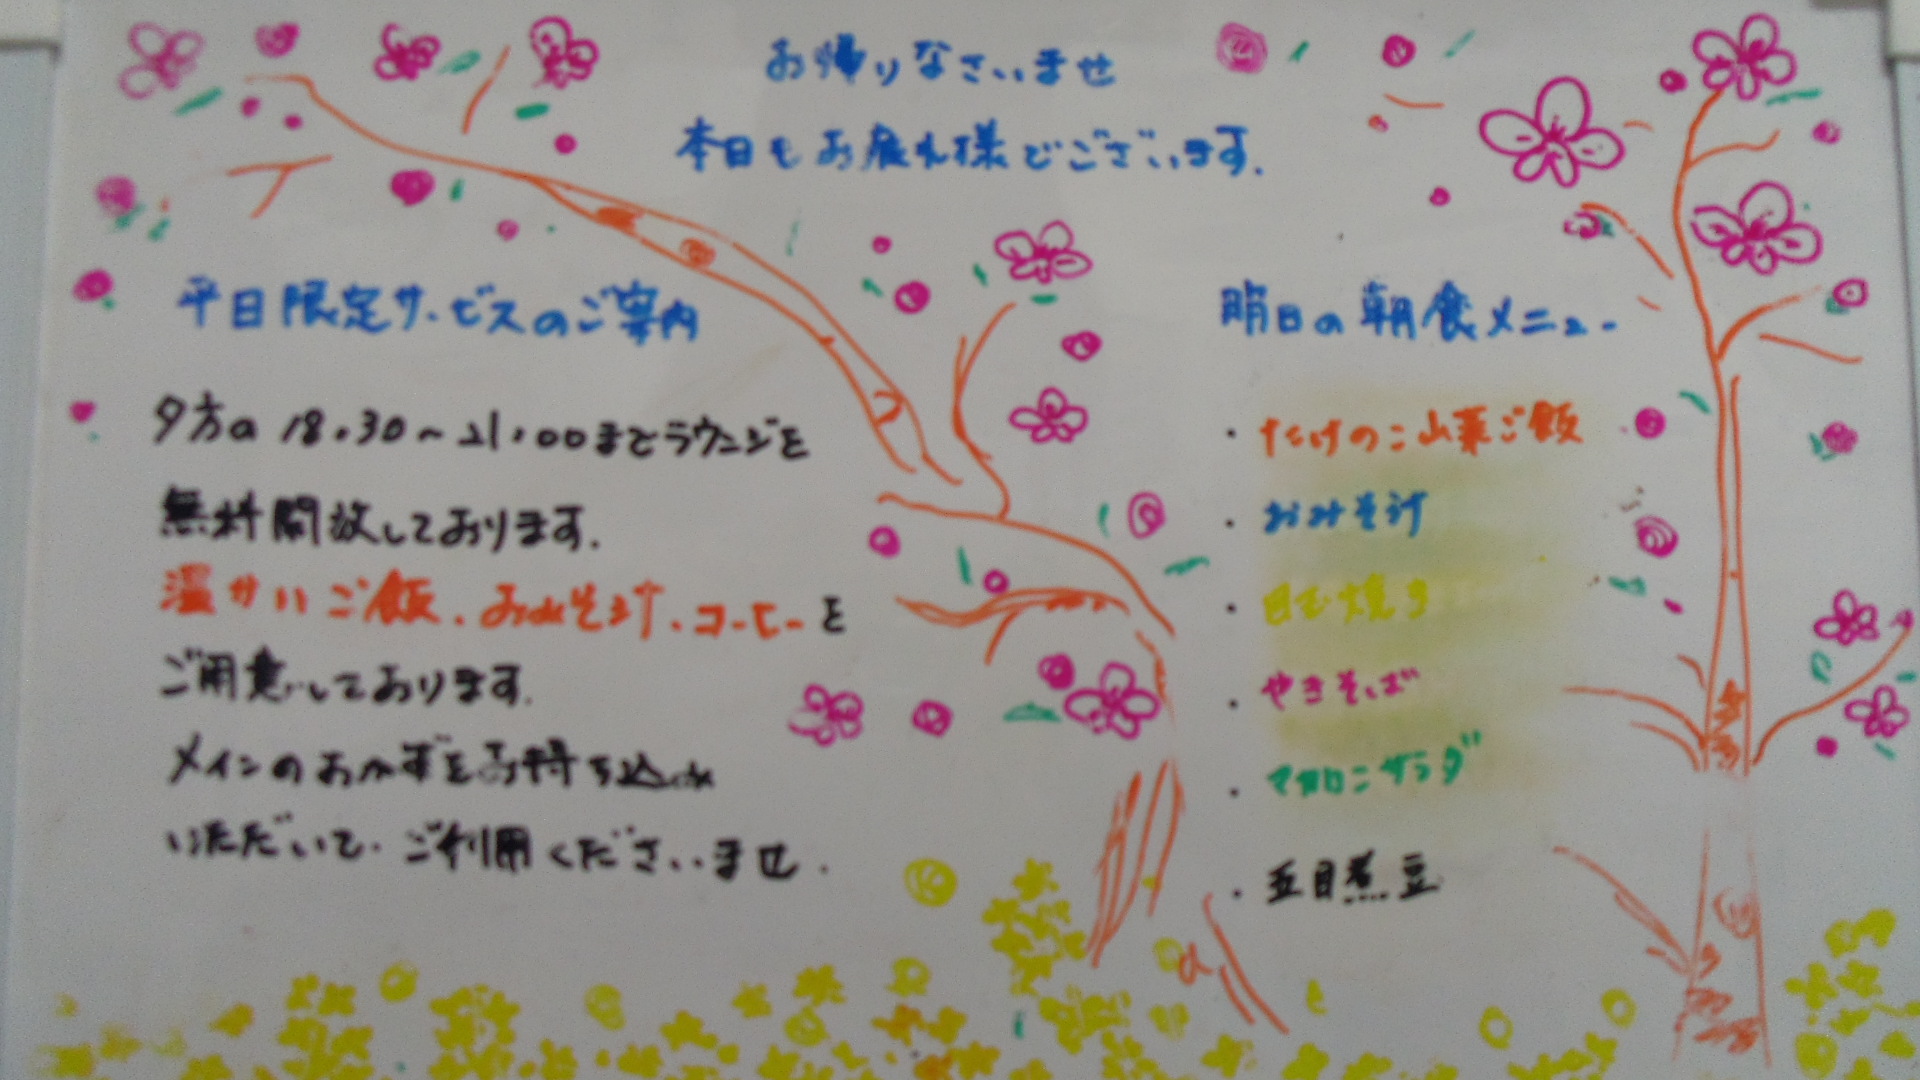 お帰りなさいませ
本日もお疲れ様でございます.
平日限定サービスのご案内
夕方の 18.30~21.00までラウンジを
無料開放しております.
温かいご飯.おみそ汁.コーヒーを
ご用意しております.
メインのおかずをお持ち込み
いただいて.ご利用くださいませ.
明日の朝食メニュー
・たけのこ山菜ご飯
・おみそ汁
・目玉焼き
・やきそば
・マカロニサラダ
・五目煮豆